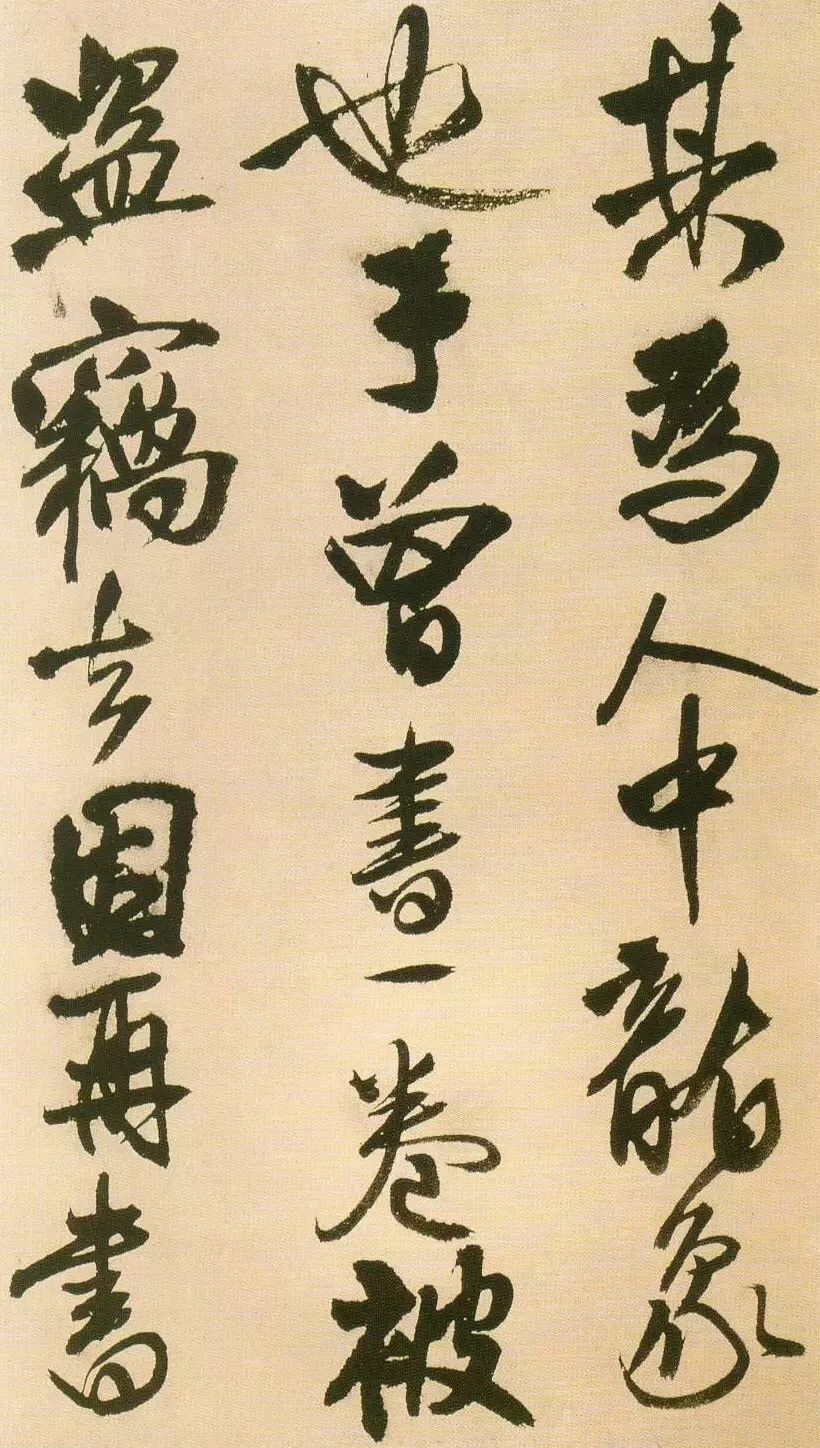 其為人中龍象
也予曾書一卷被
盜竊去因再書